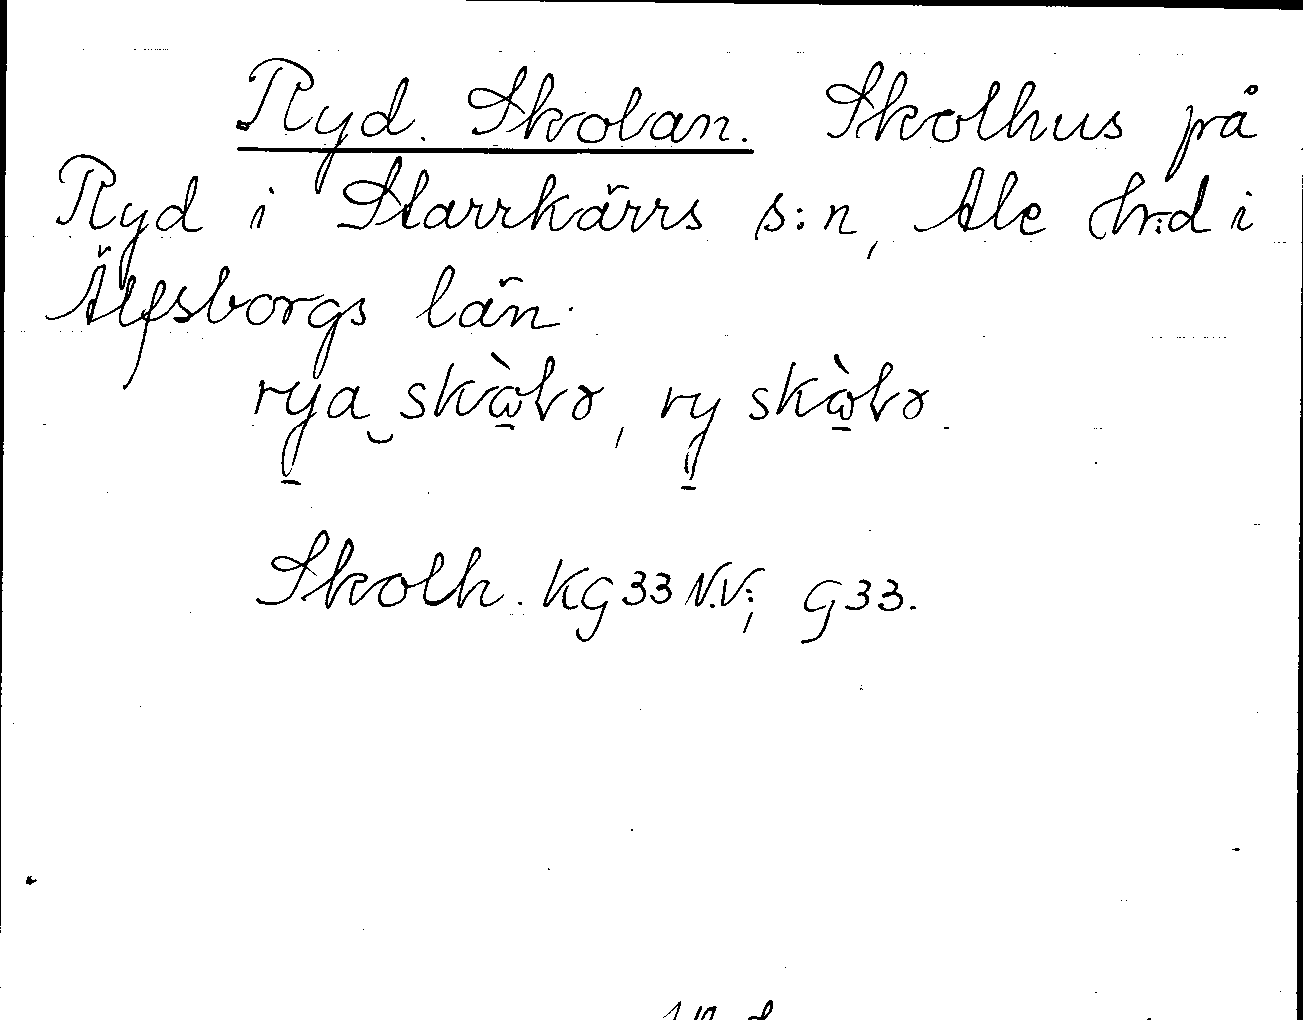 Ryd. Skolan. Skolhus på
Ryd i Starrkärrs s:n, Ale hrd i
Älfsborgs län.
rya skòlɘ, ry skòlɘ.
Skolh. KG33 N.V.; G33.